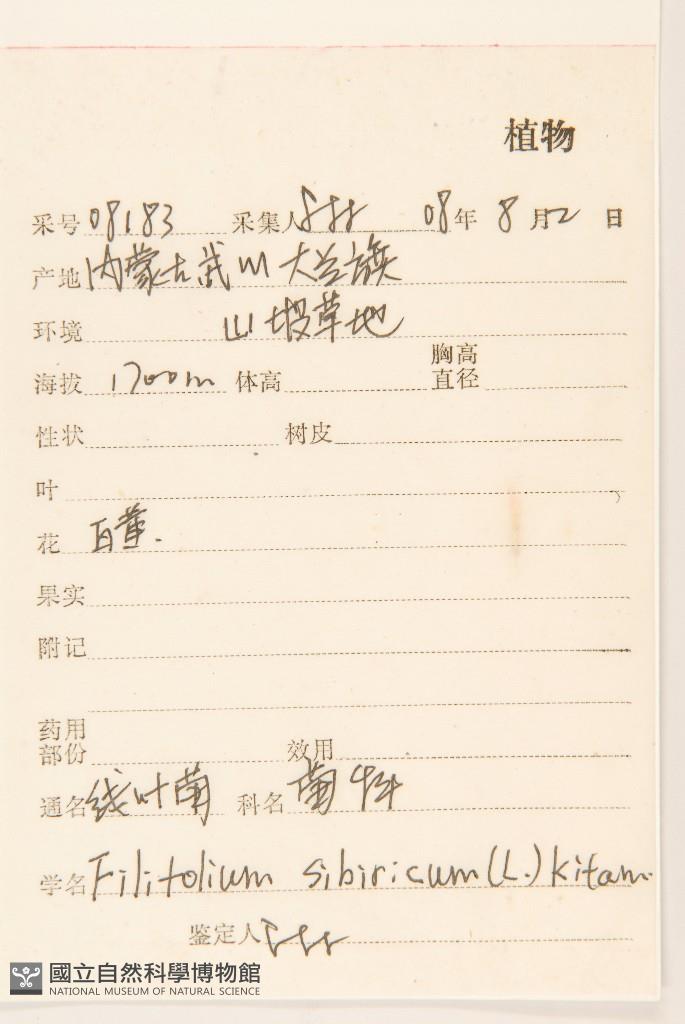 植物
采号 08183 采集人 08年 8月2日
产地 内蒙古武川大兰旗
环境 山坡草地
海拔 1700m 体高 胸高直径
性状 树皮
叶
花 白黄.
果实
附记
药用部份 效用
通名 线叶菊 科名 菊科
学名 Filifolium sibiricum (L.) Kitam.
鉴定人
國立自然科學博物館
NATIONAL MUSEUM OF NATURAL SCIENCE